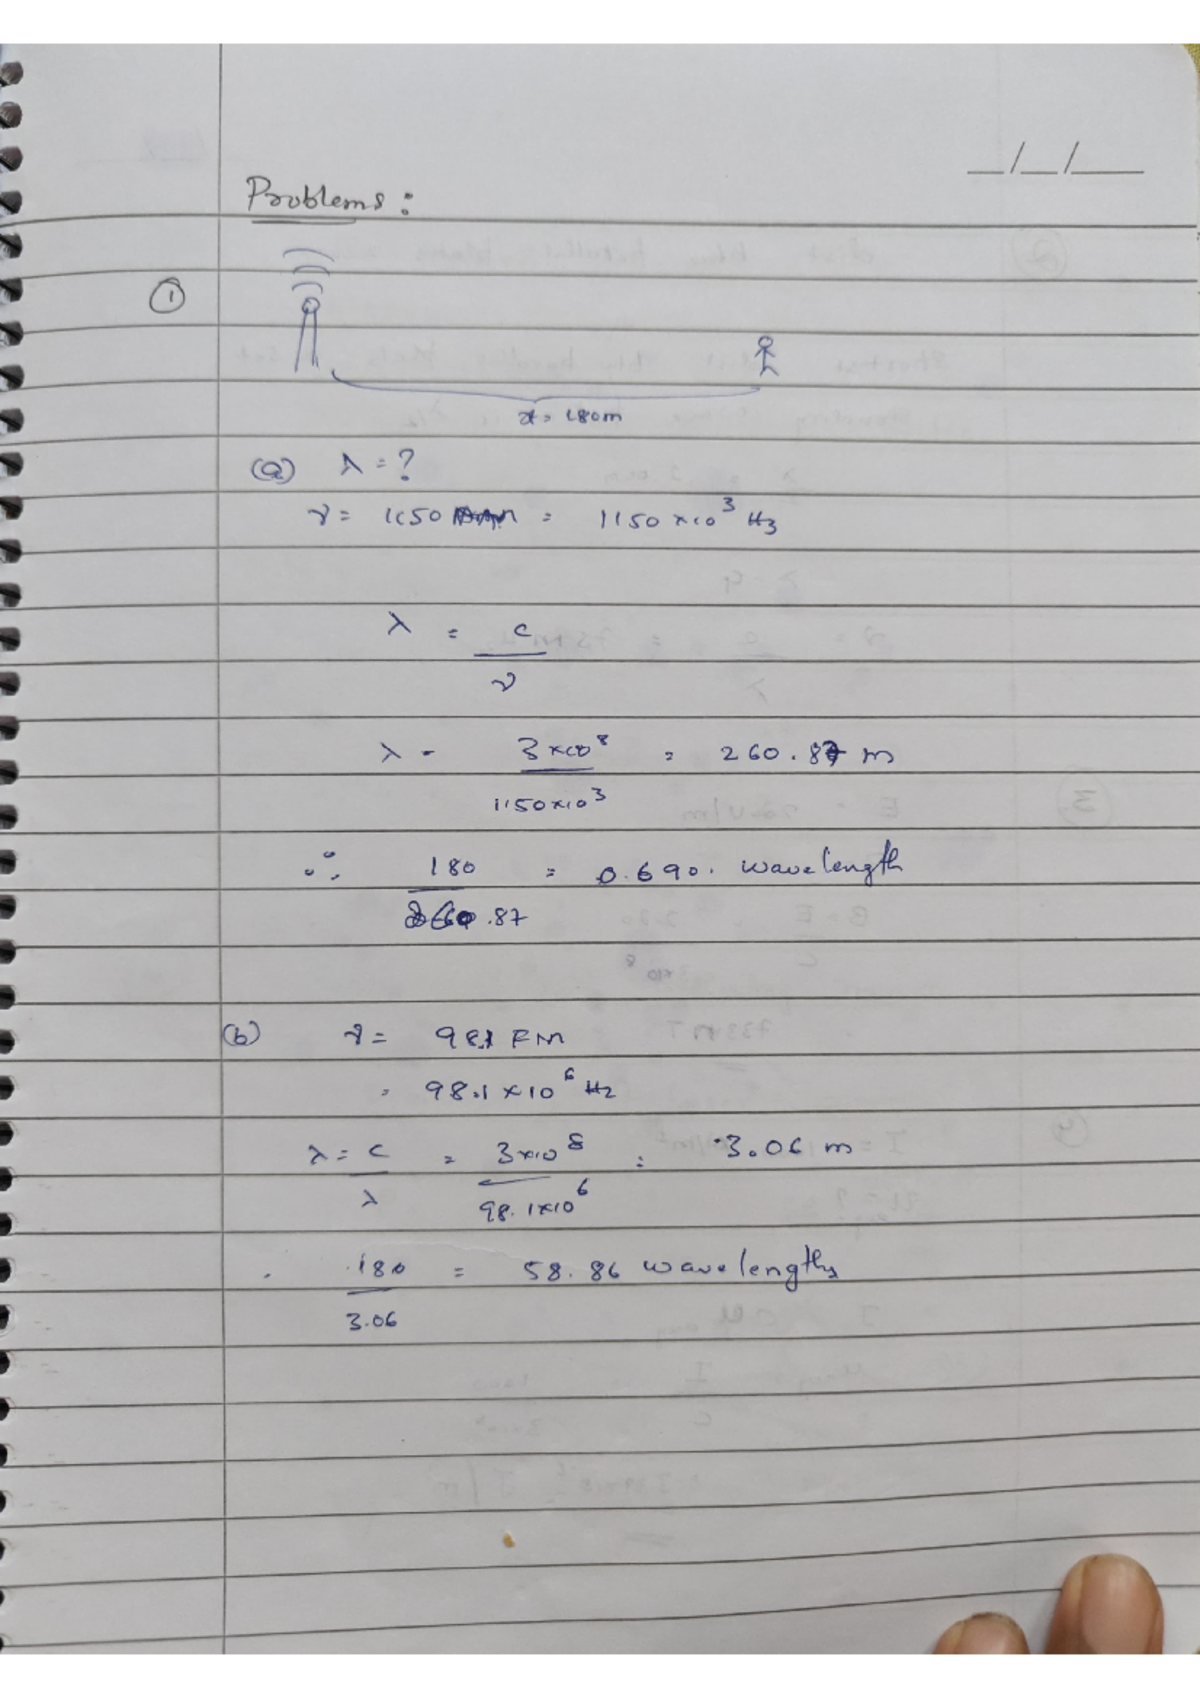 _/_/__
Problems:
①
x = 180m
(a) λ = ?
ν = 1150 = 1150×10³ Hz
λ = c/ν
λ = 3×10⁸/1150×10³ = 260.87 m
∴ 180/260.87 = 0.690. wavelength
(b) ν = 98.1 FM
= 98.1×10⁶ Hz
λ = c/λ = 3×10⁸/98.1×10⁶ = 3.06 m
180/3.06 = 58.86 wavelengths